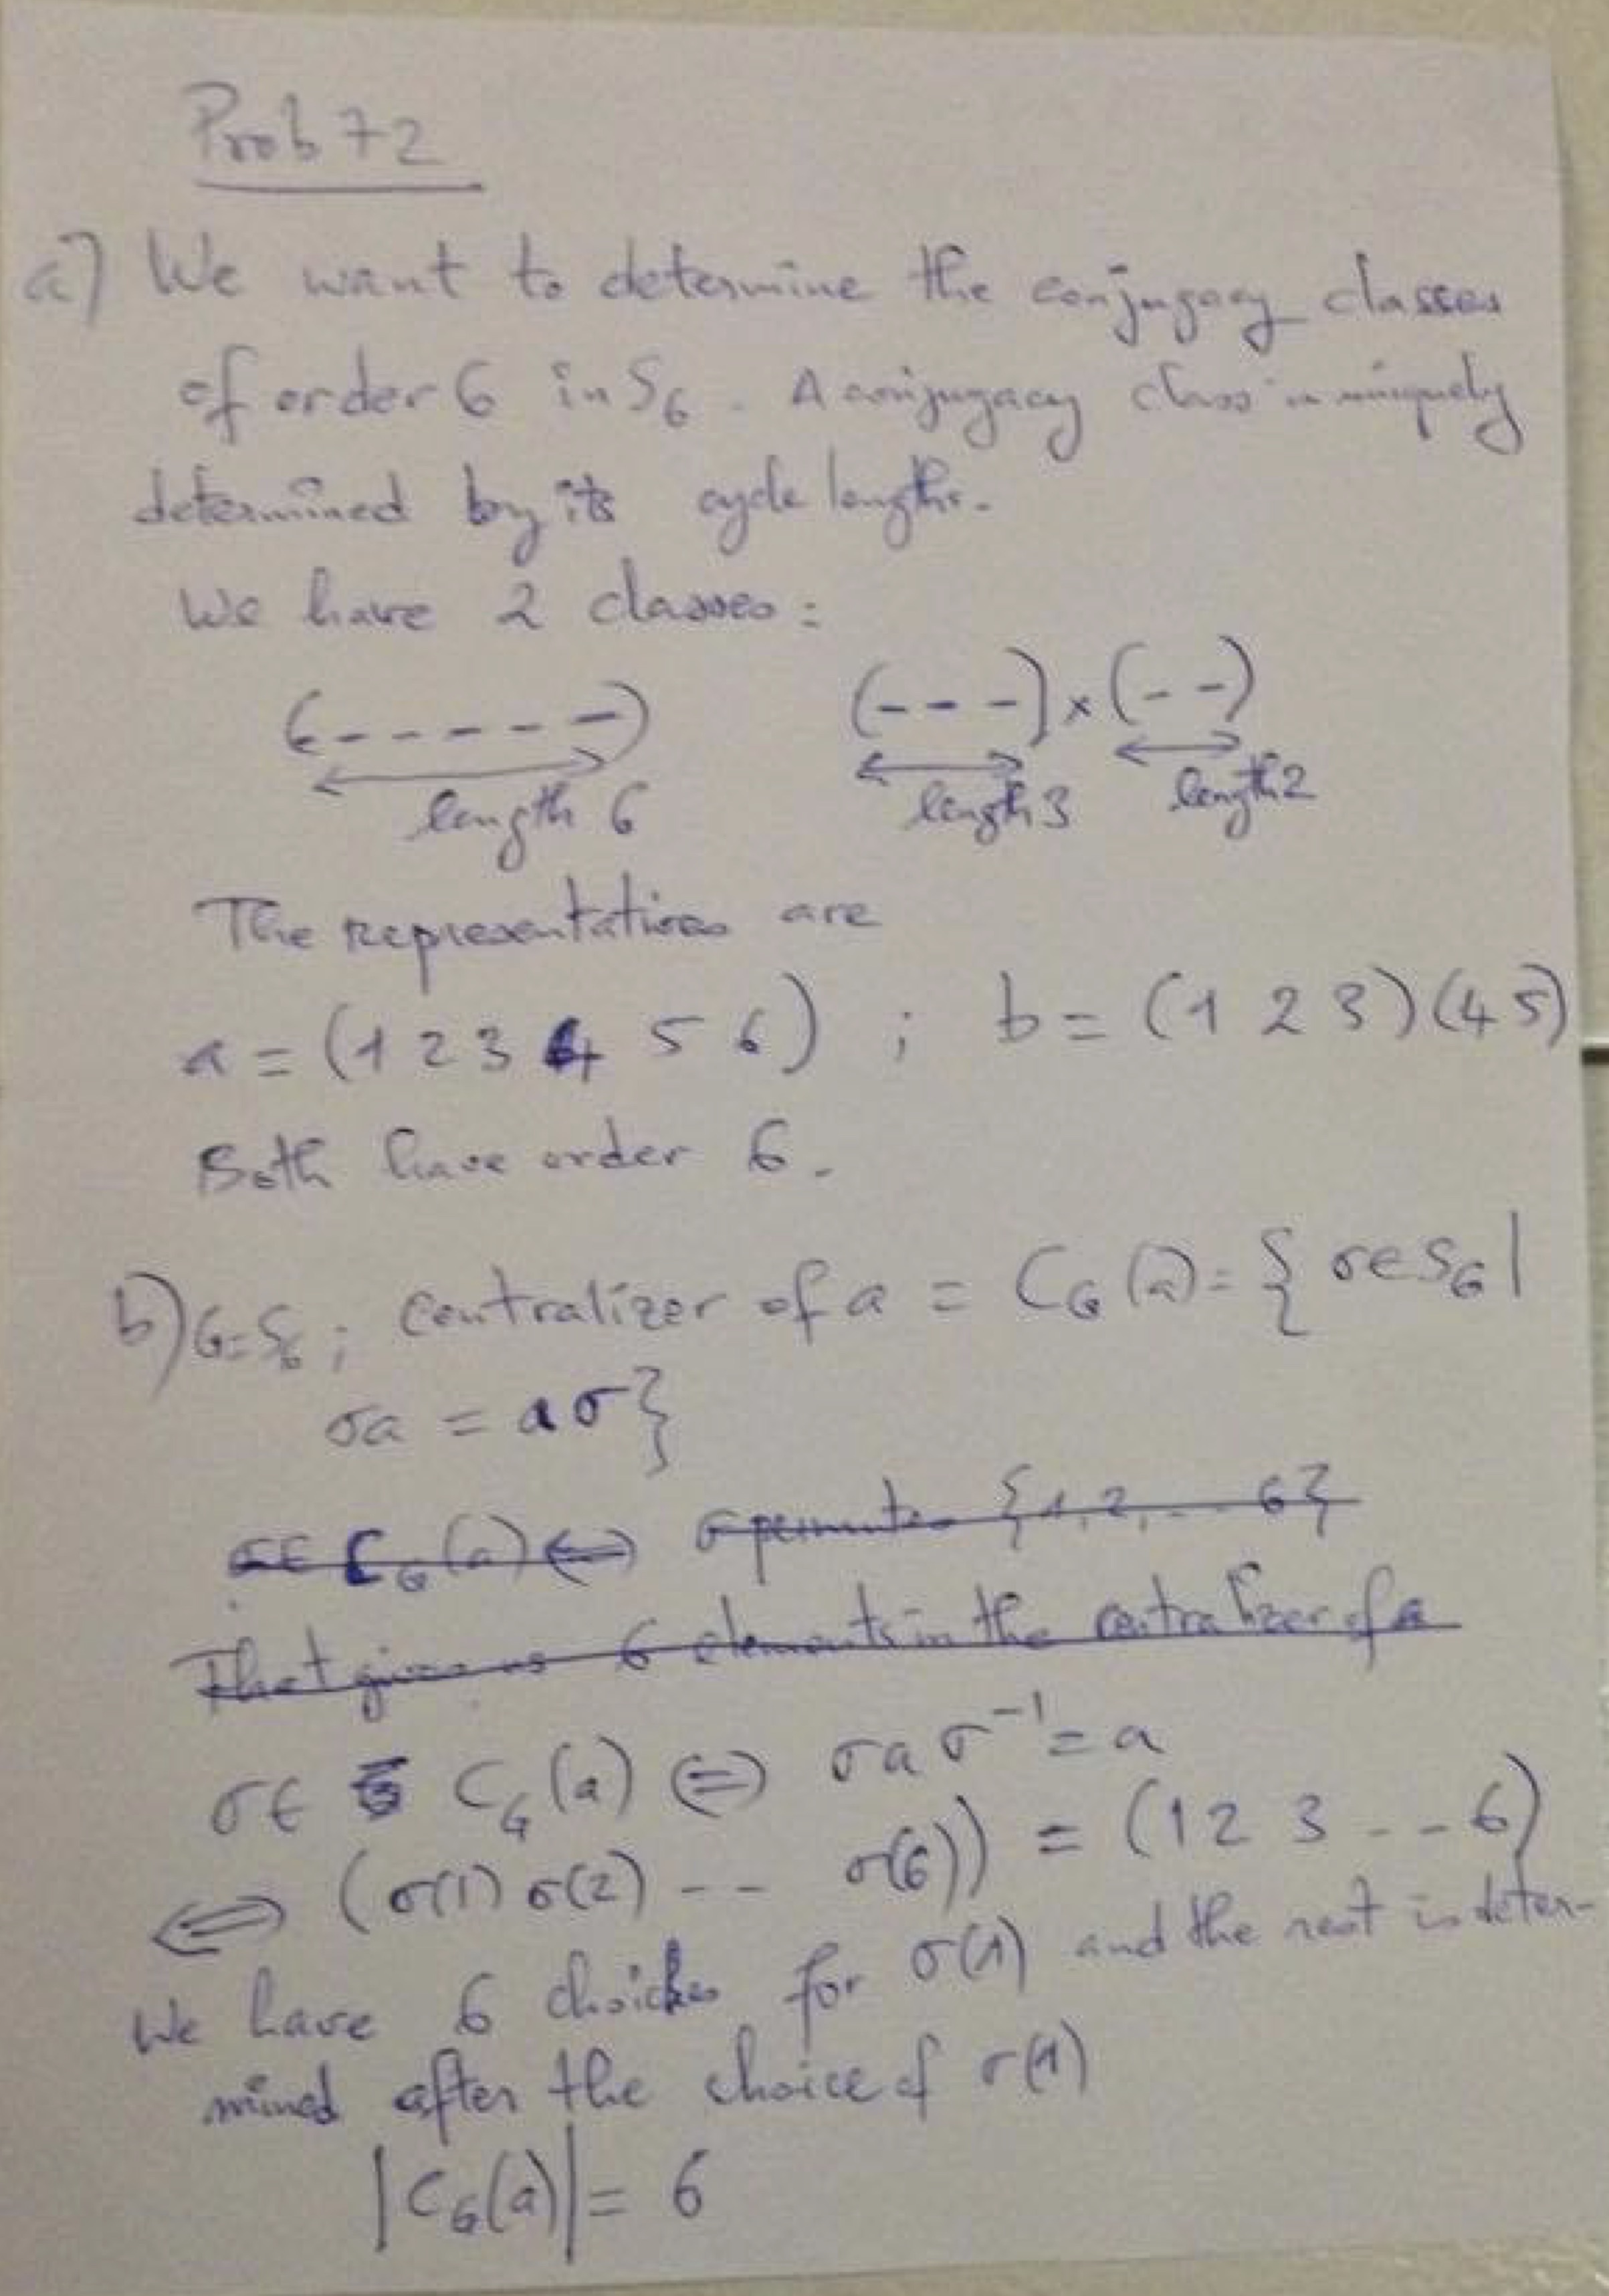 Prob 72
a) We want to determine the conjugacy classes
of order 6 in S6. A conjugacy class is uniquely
determined by its cycle lengths.
We have 2 classes:
(------) (---)×(--)
length 6 length 3 length 2
The representatives are
a = (1 2 3 4 5 6) ; b = (1 2 3)(4 5)
Both have order 6.
b) G=S6; centralizer of a = CG(a) = { σ∈S6 |
σa = aσ}
σ∈ CG(a) ⇔ σ permutes {1,2,...6}
That gives us 6 elements in the centralizer of a
σ∈ CG(a) ⇔ σaσ⁻¹ = a
⇔ (σ(1) σ(2) -- σ(6)) = (1 2 3 --- 6)
We have 6 choices for σ(1) and the rest is deter-
mined after the choice of σ(1)
|CG(a)| = 6